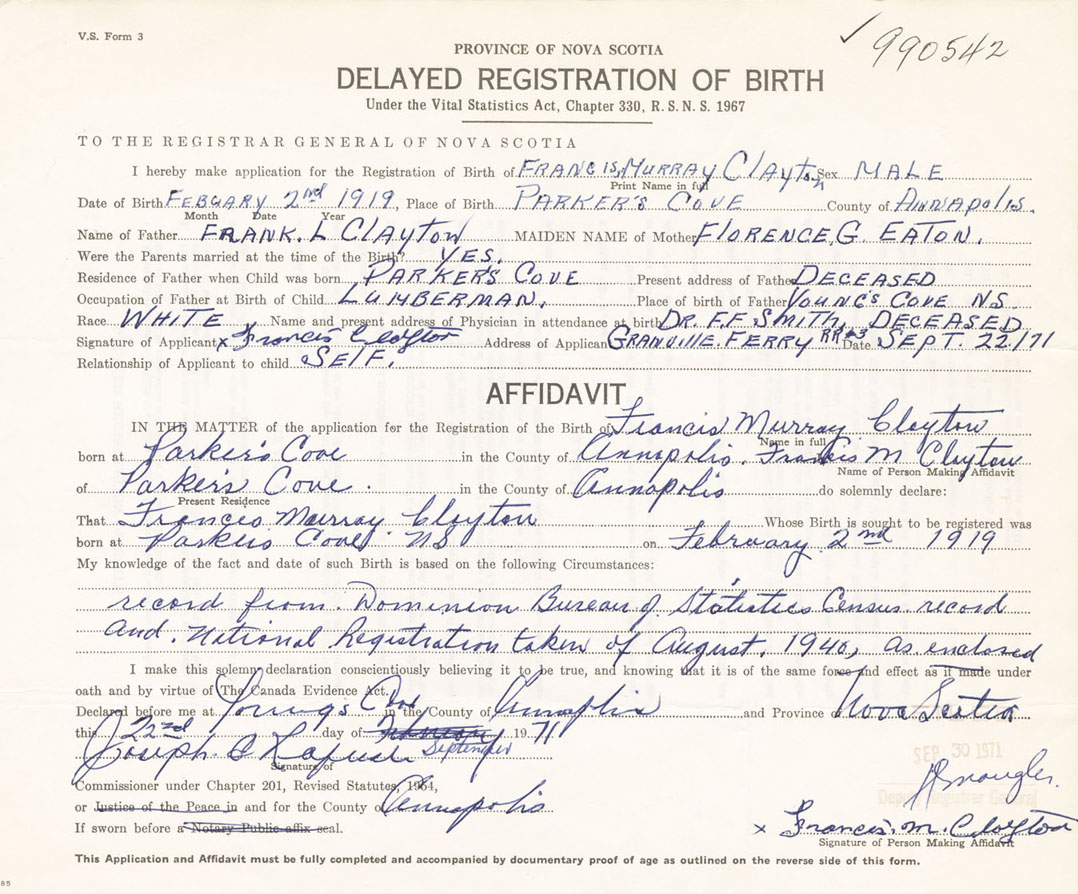 V.S. Form 3
✓ 990542
PROVINCE OF NOVA SCOTIA
DELAYED REGISTRATION OF BIRTH
Under the Vital Statistics Act, Chapter 330, R.S.N.S. 1967
TO THE REGISTRAR GENERAL OF NOVA SCOTIA
I hereby make application for the Registration of Birth of FRANCIS, MURRAY Clayton Sex MALE
Print Name in full
Date of Birth FEBUARY 2nd 1919, Place of Birth PARKER'S COVE County of ANNAPOLIS.
Month Date Year
Name of Father FRANK. L CLAYTON MAIDEN NAME of Mother FLORENCE, G. EATON.
Were the Parents married at the time of the Birth? YES.
Residence of Father when Child was born PARKER'S COVE Present address of Father DECEASED
Occupation of Father at Birth of Child LUMBERMAN. Place of birth of Father YOUNG'S COVE NS
Race WHITE Name and present address of Physician in attendance at birth DR. F.F SMITH, DECEASED
Signature of Applicant x Francis Clayton Address of Applicant GRANVILLE. FERRY RR#3 Date SEPT. 22/71
Relationship of Applicant to child SELF.
AFFIDAVIT
IN THE MATTER of the application for the Registration of the Birth of Francis Murray Clayton
Name in full
born at Parker's Cove in the County of Annapolis. Francis M Clayton
Name of Person Making Affidavit
of Parker's Cove. in the County of Annapolis do solemnly declare:
Present Residence
That Francis Murray Clayton Whose Birth is sought to be registered was
born at Parkers Cove NS on February 2nd 1919
My knowledge of the fact and date of such Birth is based on the following Circumstances:
record from Dominion Bureau of Statistics Census record
and. National Registration taken of August, 1940, as enclosed
I make this solemn declaration conscientiously believing it to be true, and knowing that it is of the same force and effect as it made under
oath and by virtue of The Canada Evidence Act.
Declared before me at Youngs Cove in the County of Annapolis and Province of Nova Scotia
this 22nd day of September 1971
Joseph
Signature of
SEP 30 1971
Commissioner under Chapter 201, Revised Statutes, 1954,
Deputy Registrar General
or Justice of the Peace in and for the County of Annapolis
If sworn before a Notary Public affix seal.
x Francis. M. Clayton
Signature of Person Making Affidavit
This Application and Affidavit must be fully completed and accompanied by documentary proof of age as outlined on the reverse side of this form.
85